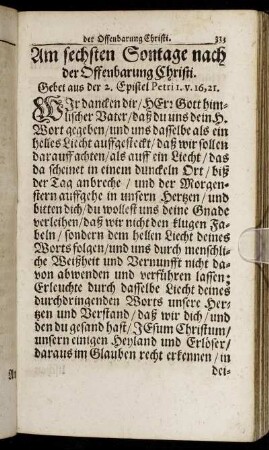 der Offenbarung Christi. 313
Am sechsten Sontage nach
der Offenbarung Christi.
Gebet aus der 2. Epistel Petri 1. v. 16, 21.
WIr dancken dir/ HErꝛ Gott him-
lischer Vater/ daß du uns dein H.
Wort gegeben/ und uns dasselbe als ein
helles Liecht auffgesteckt/ daß wir sollen
darauff achten/ als auff ein Liecht/ das
da scheinet in einem dunckeln Ort/ biß
der Tag anbreche/ und der Morgen-
stern auffgehe in unsern Hertzen/ und
bitten dich/ du wollest uns deine Gnade
verleihen/ daß wir nicht den klugen Fa-
beln/ sondern dem hellen Liecht deines
Worts folgen/ und uns durch menschli-
che Weißheit und Vernunfft nicht da-
von abwenden und verführen lassen:
Erleuchte durch dasselbe Liecht deines
durchdringenden Worts unsere Her-
tzen und Verstand/ daß wir dich/ und
den du gesand hast/ JEsum Christum/
unsern einigen Heyland und Erlöser/
daraus im Glauben recht erkennen/ in
dei-